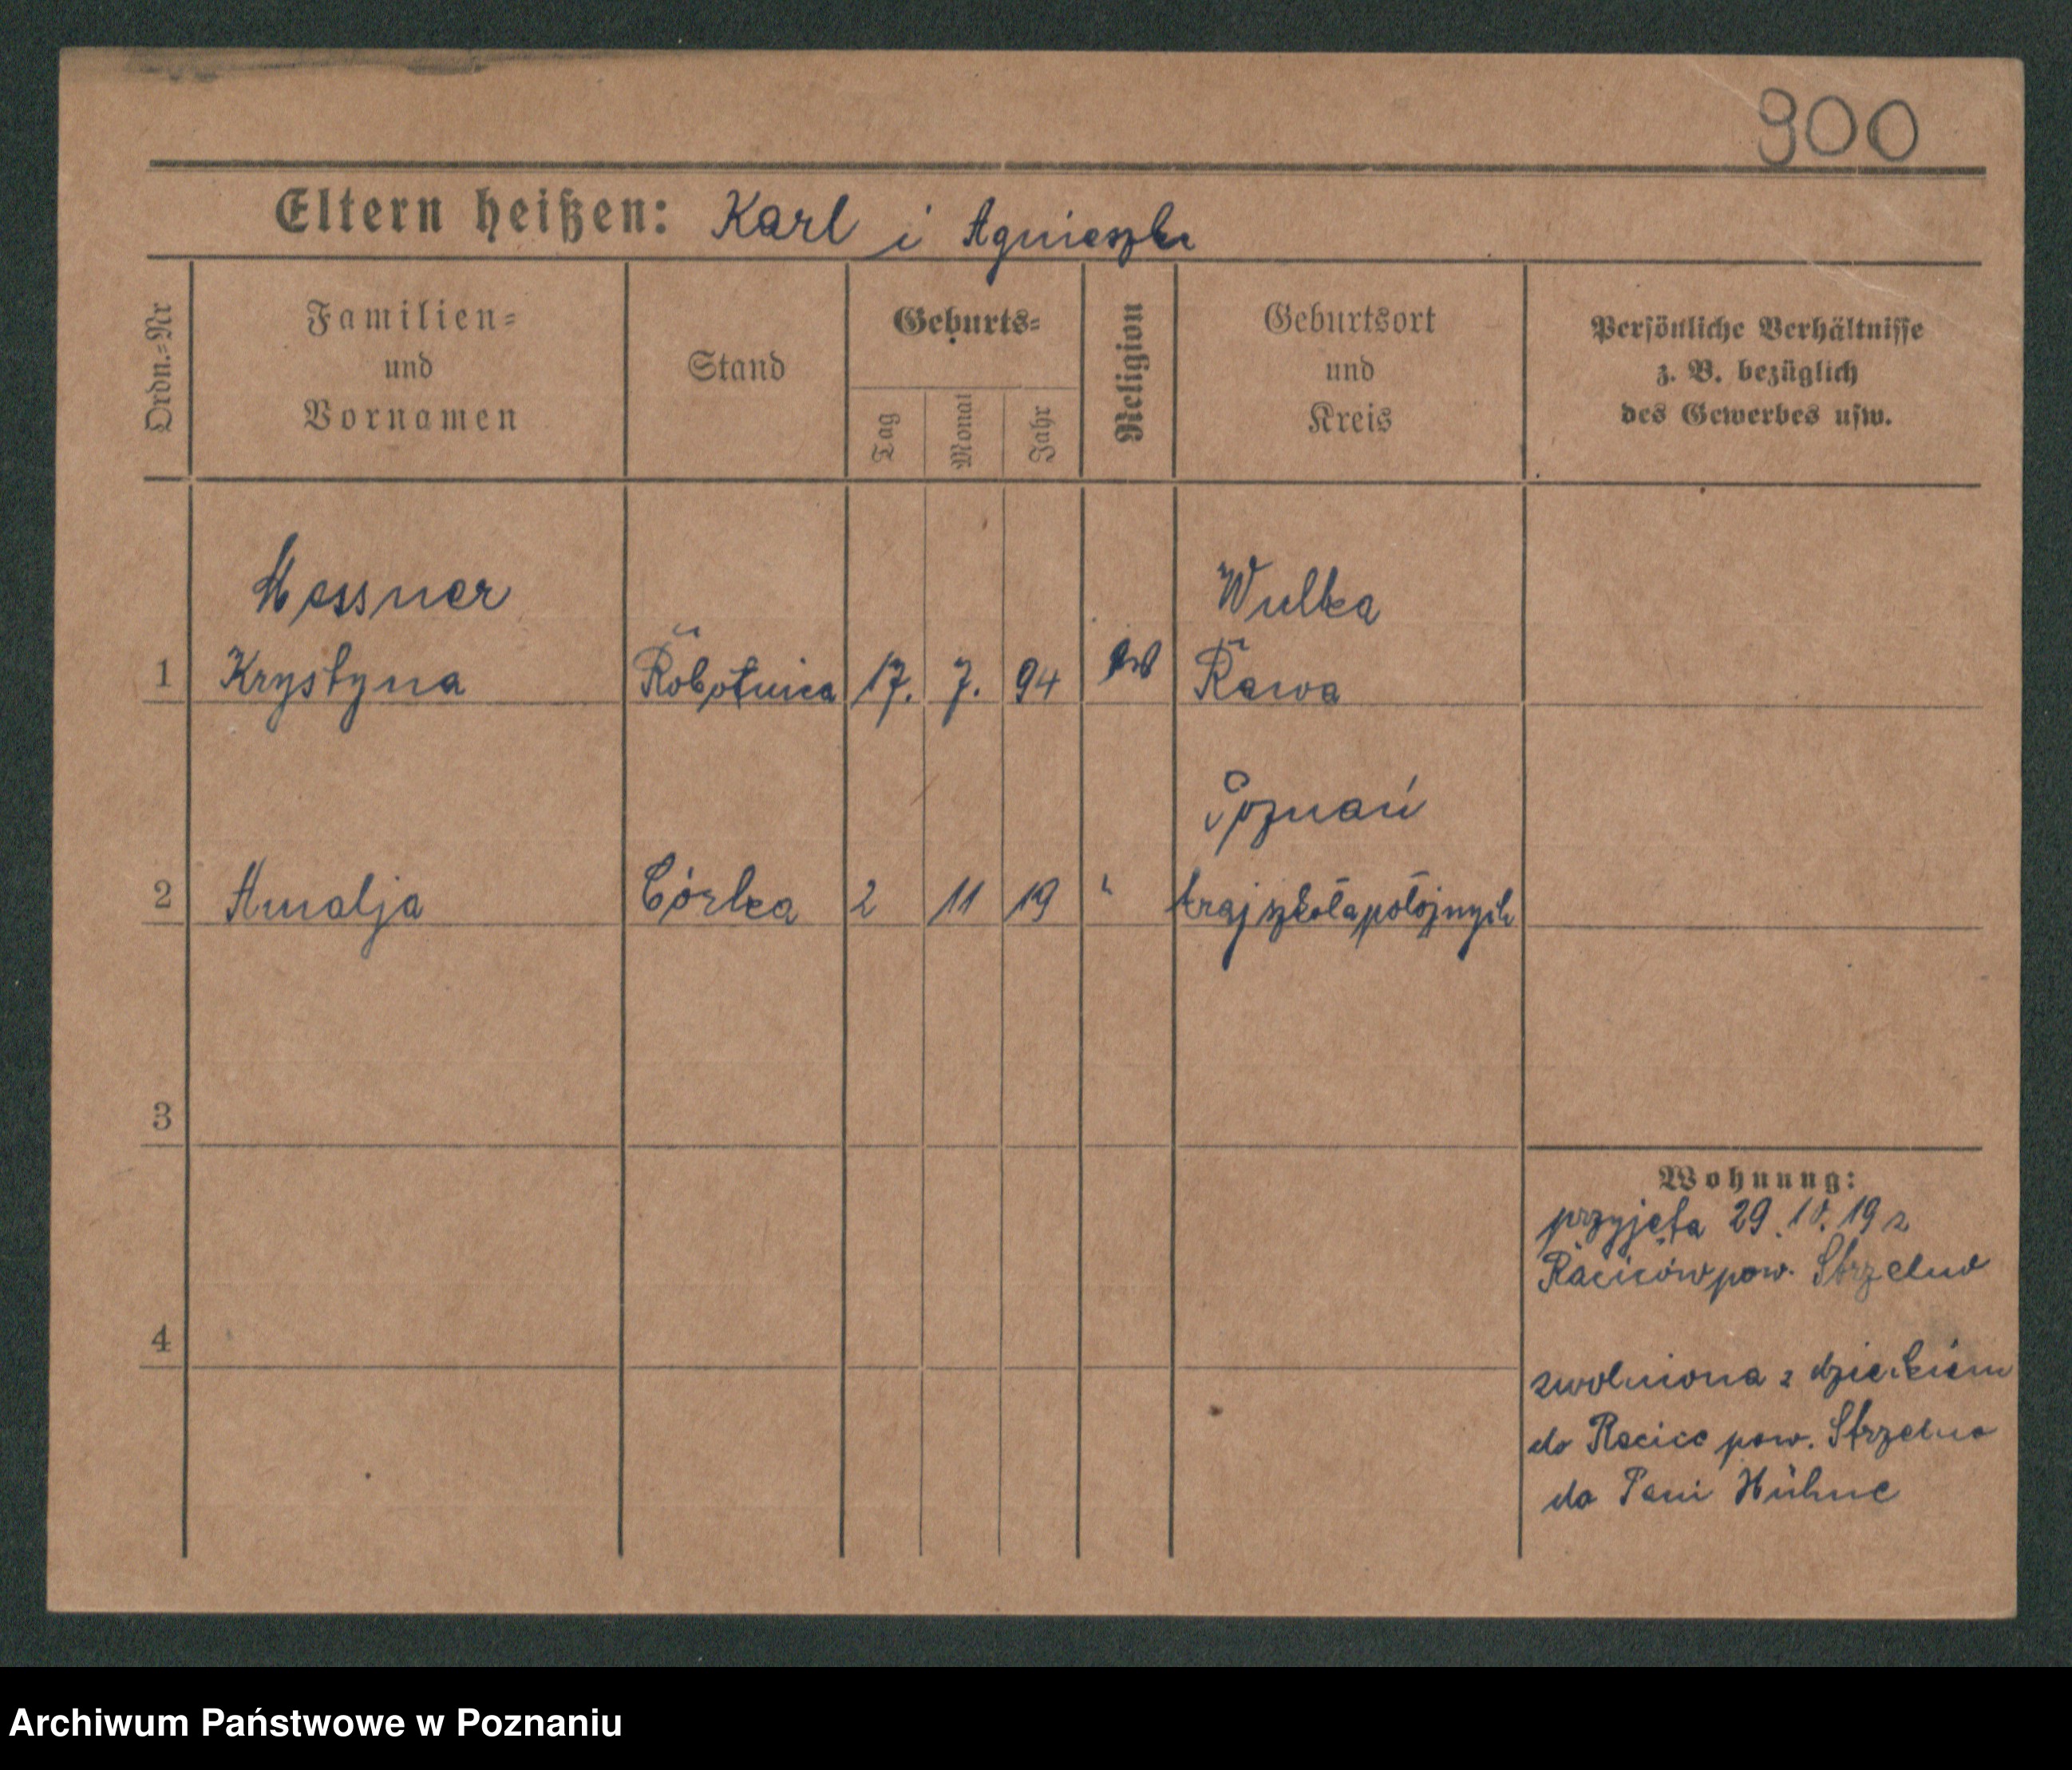 900
Eltern heißen: Karl i Agnieszka
Ordn.=Nr
Familien=
und
Vornamen
Stand
Geburts=
Tag
Monat
Jahr
Religion
Geburtsort
und
Kreis
Persönliche Verhältnisse
z. B. bezüglich
des Gewerbes usw.
Messner
Wulka
1 Krystyna Robotnica 17. 7. 94 ew Rawa
Poznań
2 Amalja Córka 2 11 19 "
3
Wohnung:
przyjęta 29. 10. 19 r
pow. Strzelno
4
zwolniona z dzieckiem
do Racice pow. Strzelno
do Pani Hühne
Archiwum Państwowe w Poznaniu